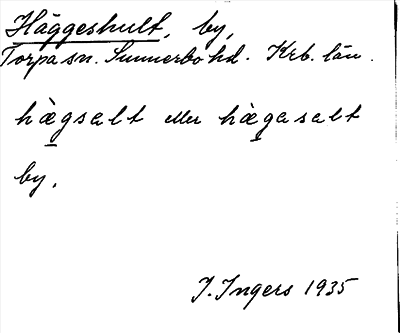 Häggeshult, by,
Torpa sn. Sunnerbo hd. Krb. län.
hàgsalt eller hàgasalt
by.
I. Ingers 1935